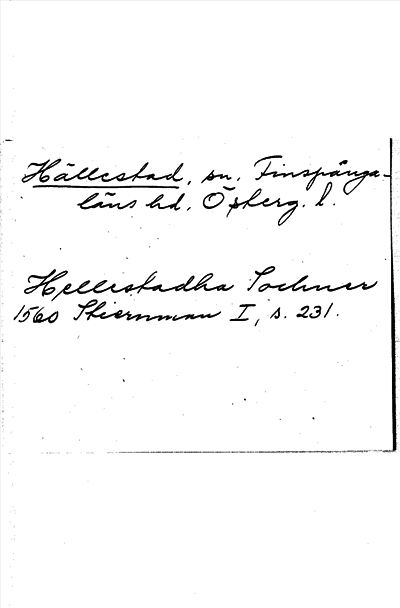 Hällestad, sn. Finspånga-
läns hd, Ö sterg. l.
Hellestadha Sochner
1560 Stiernman I, s. 231.